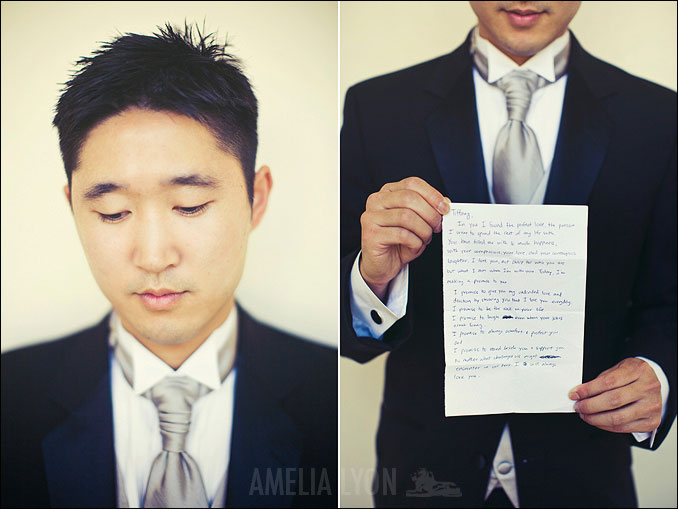 Tiffany,
In you I found the perfect love, the person
I want to spend the rest of my life with.
You have filled me with so much happiness,
with your love and your contagious
laughter. I love you, not only for who you are
but what I am when I'm with you. Today, I'm
making a promise to you.
I promise to give you my undivided love and
devotion by showing you that I love you everyday
I promise to be the and in your
I promise to laugh even when your jokes
arent funny
I promise to always comfort & protect you
and
I promise to stand beside you & support you
no matter what challenges we might
encounter in our lives. I will always
love you.
AMELIA LYON